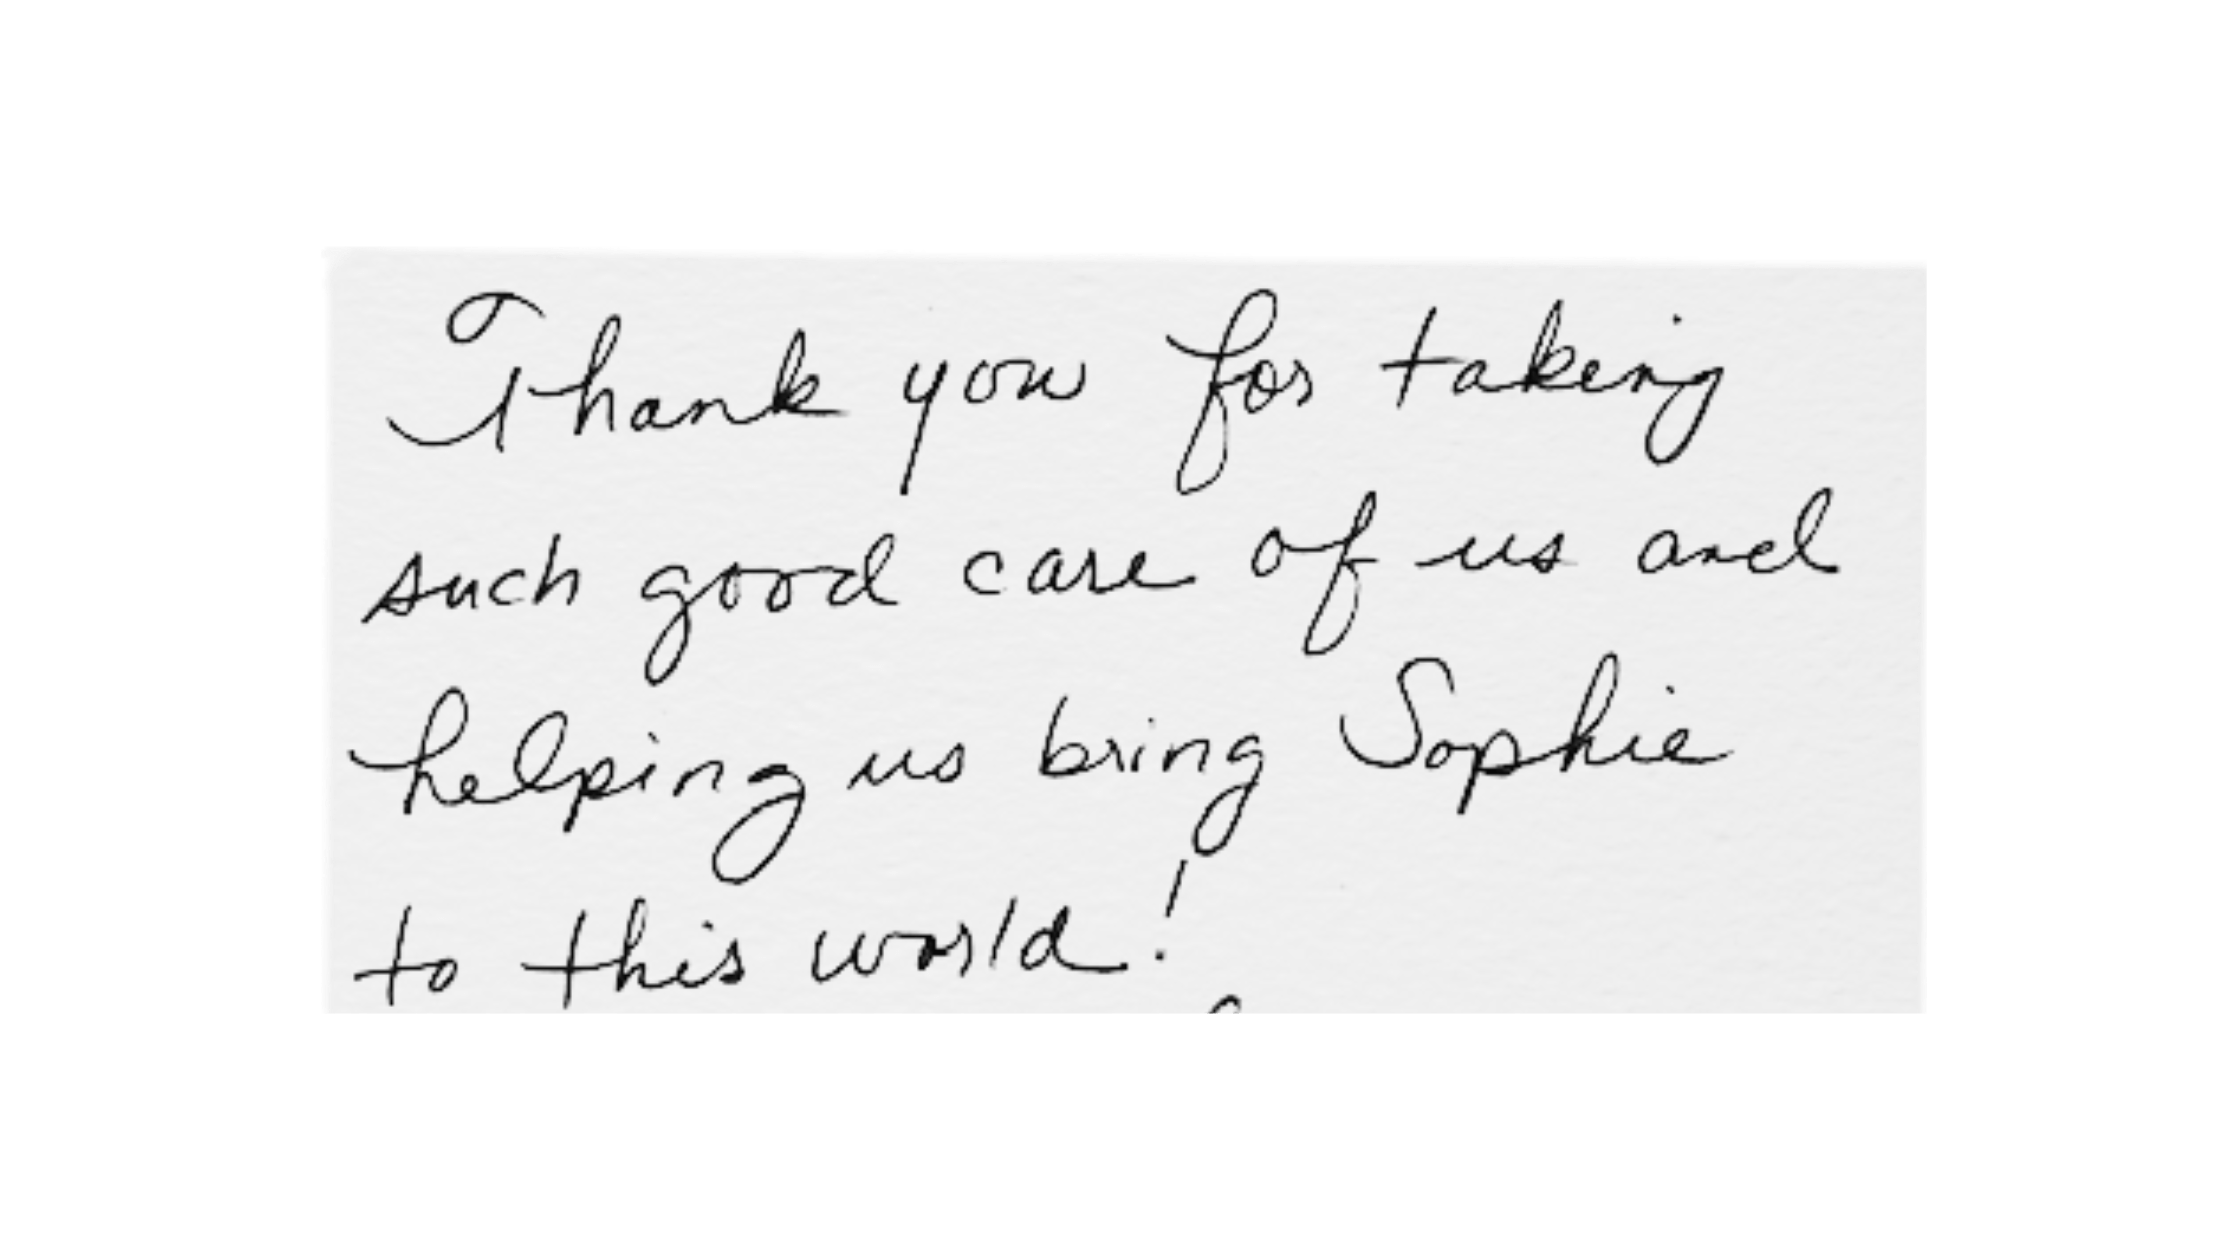 Thank you for taking
such good care of us and
helping us bring Sophie
to this world!